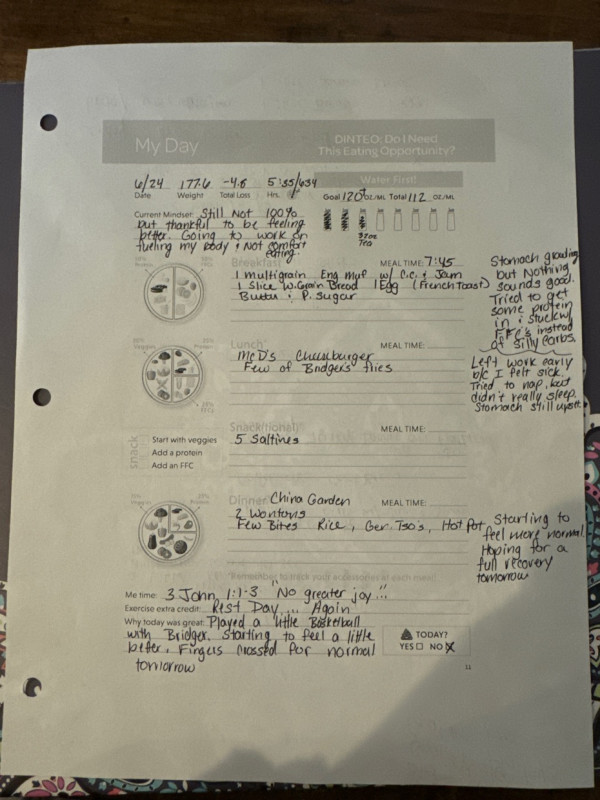 My Day
DINTEO: Do I Need
This Eating Opportunity?
6/24 177.6 -4.8 5:35/634
Date Weight Total Loss Hrs.
Water First!
Goal 120+ OZ/ML Total 112 OZ/ML
32oz
Tea
Current Mindset: Still Not 100%
but thankful to be feeling
better. Going to work on
fueling my body & Not comfort
eating.
Breakfast MEAL TIME: 7:45
1 multigrain Eng Muf w/ C.C. & Jam
1 Slice W. Grain Bread 1 Egg (French Toast)
Butter & P. Sugar
Stomach
but Nothing
sounds good.
Tried to get
some protein
in & Stuck w/
FFC's instead
of Silly Carbs.
Lunch MEAL TIME:
McD's Cheeseburger
Few of Bridger's fries
Left work early
b/c I felt sick.
Tried to nap, but
didn't really sleep.
Stomach still upset.
snack
Snack(tional) MEAL TIME:
Start with veggies
Add a protein
Add an FFC
5 Saltines
Dinner China Garden MEAL TIME:
2 Wontons
Few Bites Rice, Gen. Tso's, Hot Pot
Starting to
feel more normal.
Hoping for a
full recovery
tomorrow
*Remember to track your accessories at each meal!
Me time: 3 John 1:1-3 "No greater joy..."
Exercise extra credit: Rest Day... Again
Why today was great: Played a little Basketball
with Bridger. Starting to feel a little
better. Fingers crossed for normal
tomorrow
TODAY?
YES NO X
11